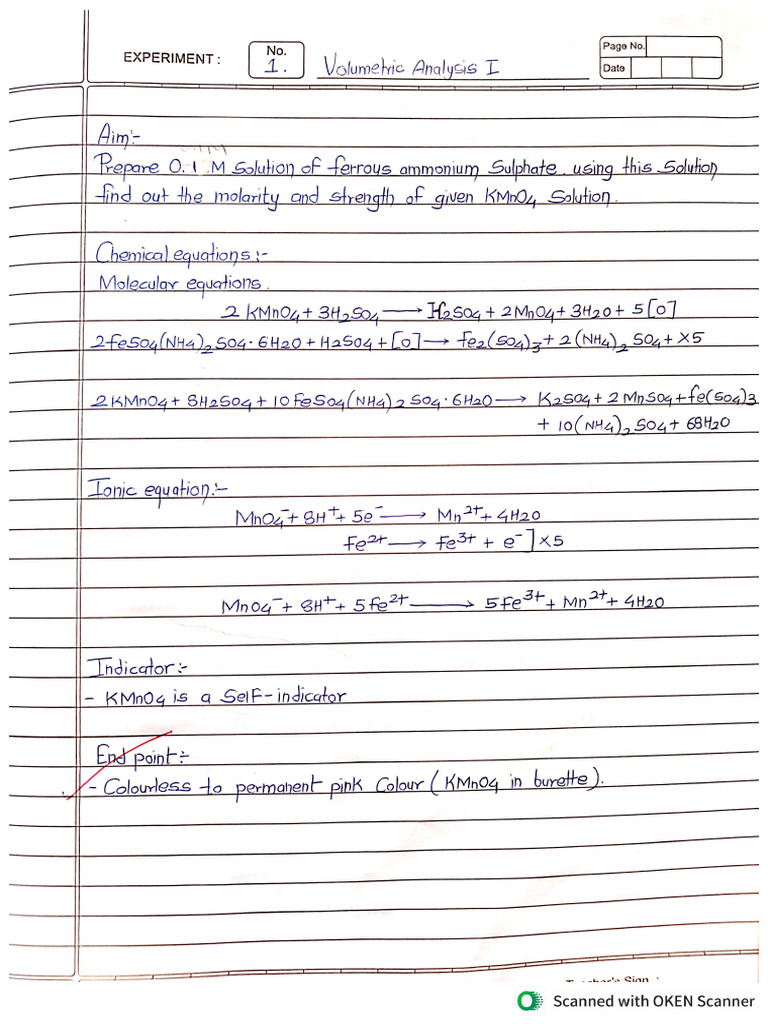 EXPERIMENT : No. 1. Volumetric Analysis I Page No.
Date
Aim:-
Prepare 0.1 M Solution of ferrous ammonium Sulphate. using this Solution
find out the molarity and strength of given KMnO4 Solution.
Chemical equations:-
Molecular equations.
2 KMnO4 + 3H2SO4 ⟶ H2SO4 + 2MnO4 + 3H2O + 5[O]
2FeSO4(NH4)2SO4·6H2O + H2SO4 + [O] ⟶ Fe2(SO4)3 + 2(NH4)2 SO4 + X5
2 KMnO4 + 8H2SO4 + 10 FeSO4(NH4)2 SO4·6H2O ⟶ K2SO4 + 2 MnSO4 + fe(SO4)3
+ 10(NH4)2 SO4 + 68H2O
Ionic equation:-
MnO4⁻ + 8H⁺ + 5e⁻ ⟶ Mn²⁺ + 4H2O
Fe²⁺ ⟶ Fe³⁺ + e⁻]X5
MnO4⁻ + 8H⁺ + 5fe²⁺ ⟶ 5Fe³⁺ + Mn²⁺ + 4H2O
Indicator:-
- KMnO4 is a Self-indicator
End point:-
- Colourless to permanent pink Colour (KMnO4 in burette).
Scanned with OKEN Scanner